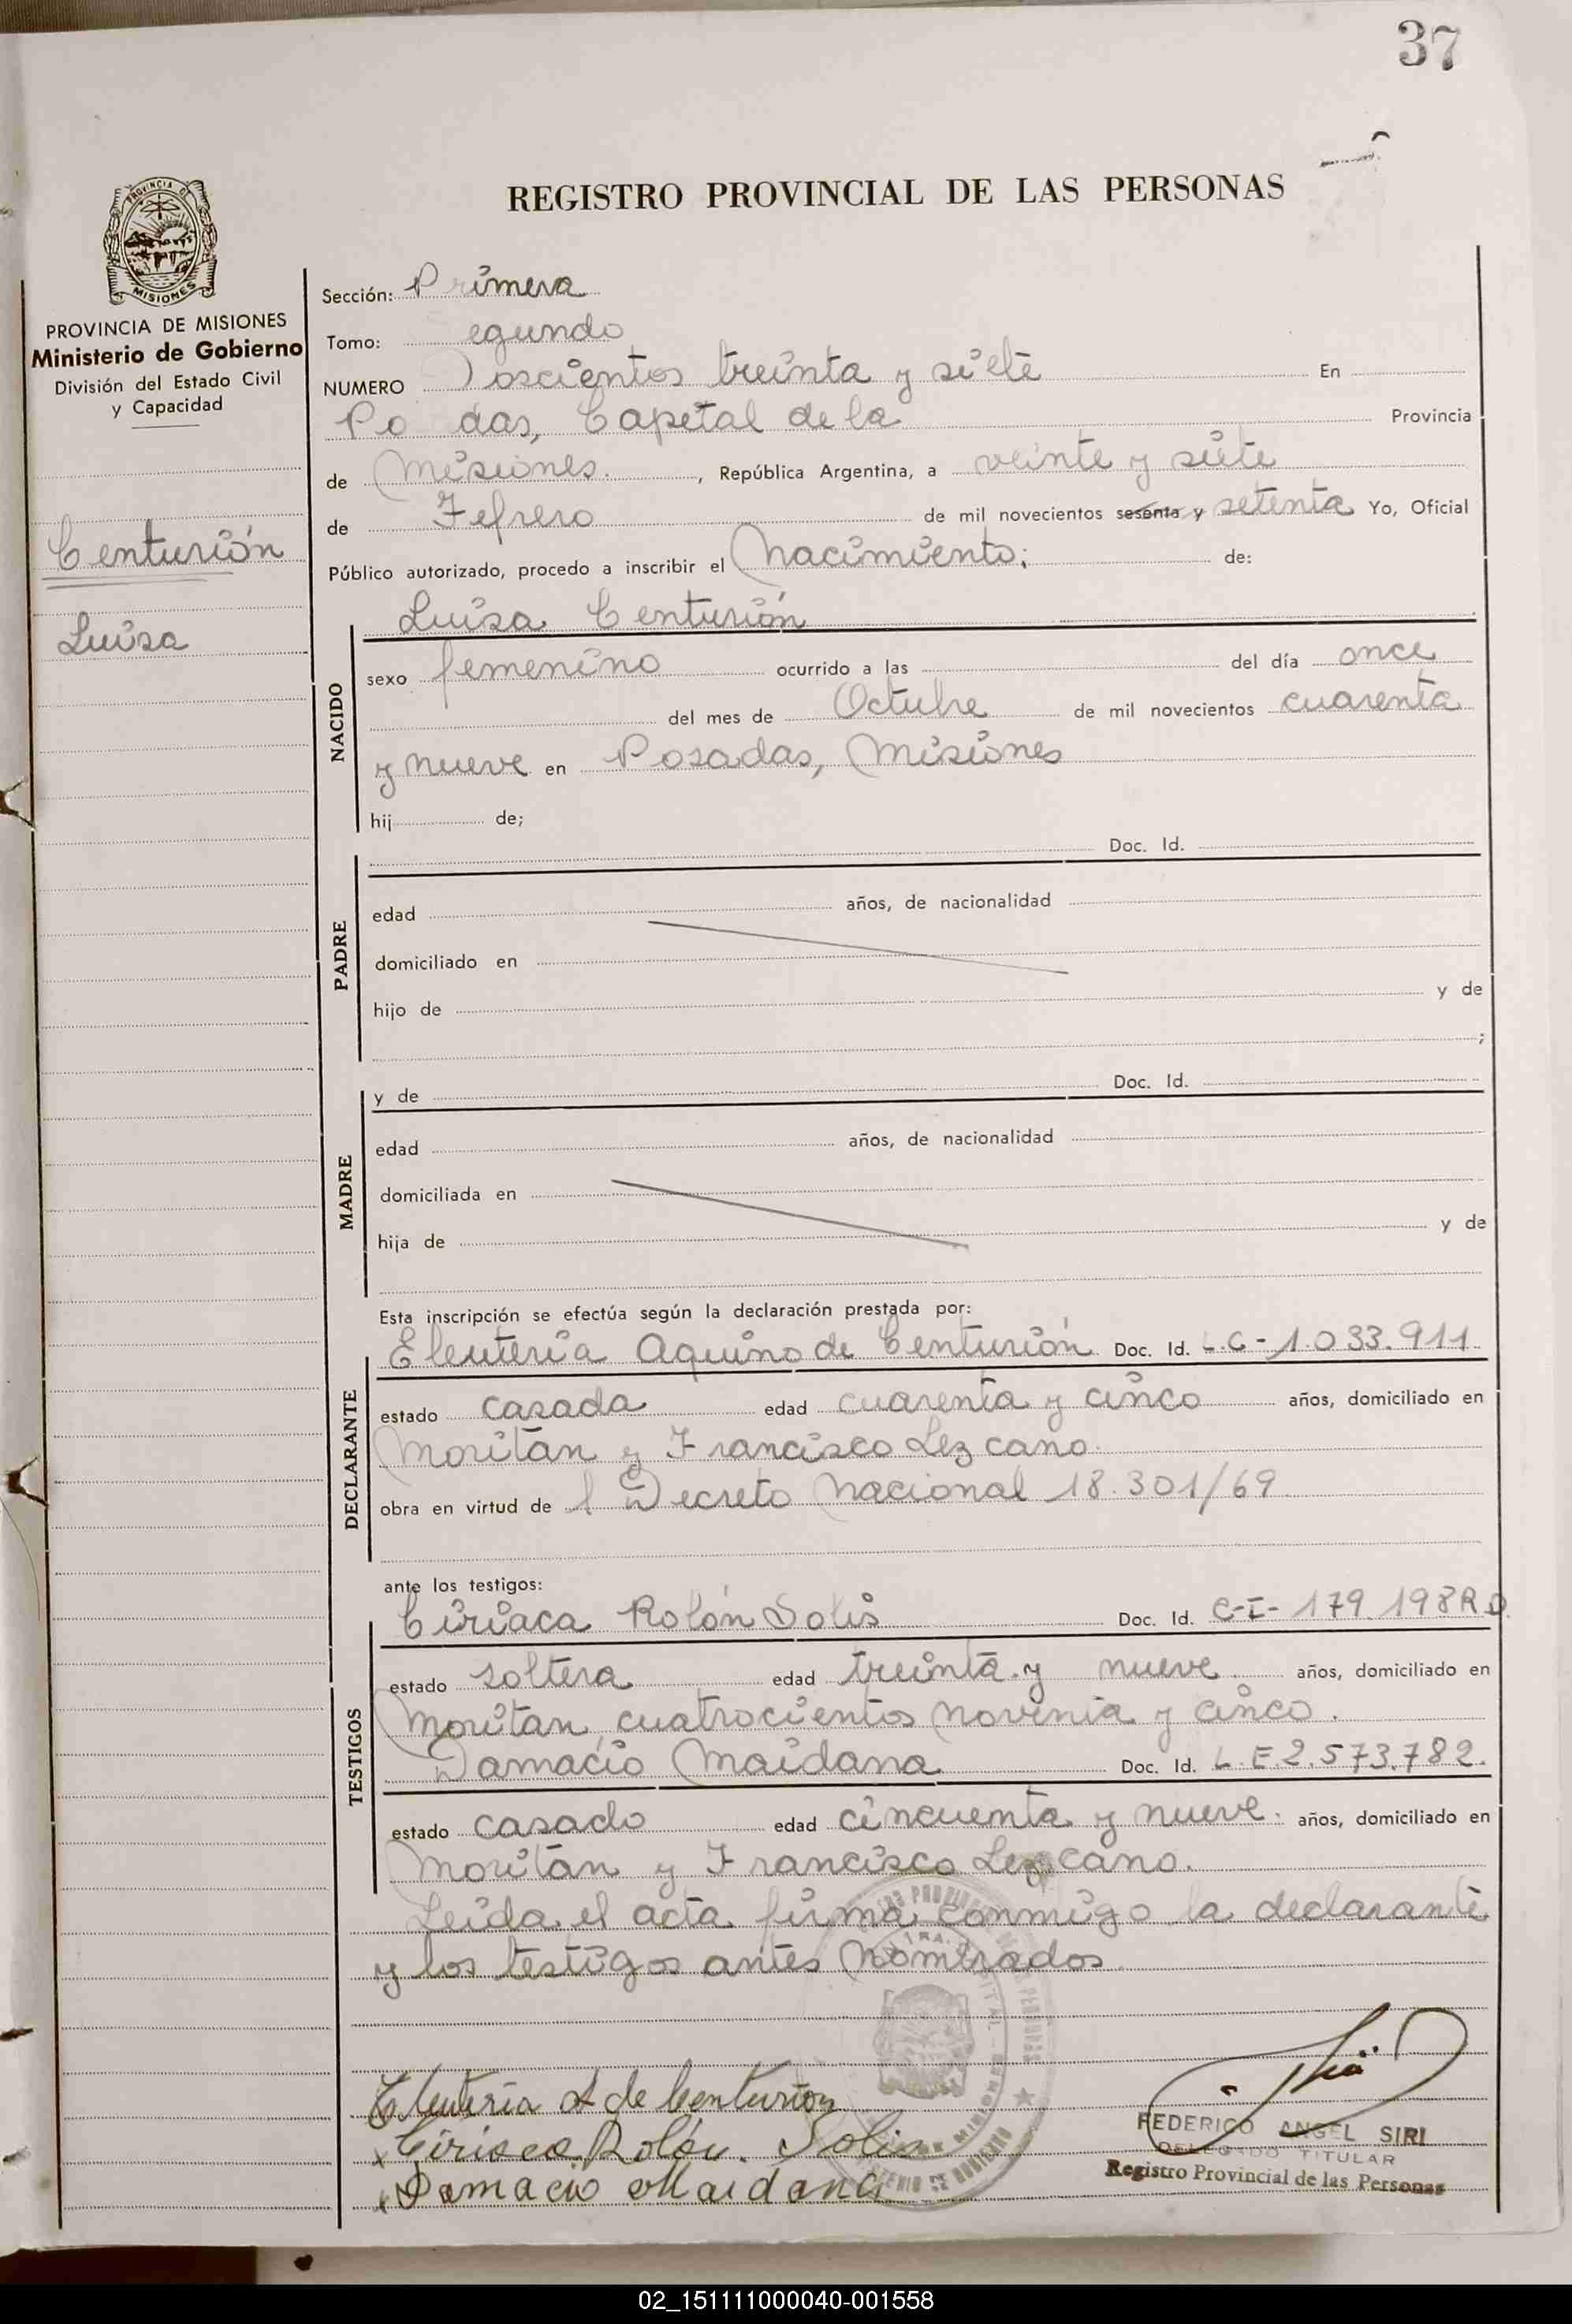 37
REGISTRO PROVINCIAL DE LAS PERSONAS
PROVINCIA DE
MISIONES
PROVINCIA DE MISIONES
Ministerio de Gobierno
División del Estado Civil
y Capacidad
Centurión
Luisa
Sección: Primera
Tomo: Segundo
NUMERO Doscientos treinta y siete En
Po das, Capital de la Provincia
de Misiones. , República Argentina, a veinte y siete
de Febrero de mil novecientos sesenta y setenta Yo, Oficial
Público autorizado, procedo a inscribir el Nacimiento; de:
Luisa Centurión
NACIDO
sexo femenino ocurrido a las del día once
del mes de Octubre de mil novecientos cuarenta
y nueve en Posadas, Misiones
hij de;
PADRE
Doc. Id.
edad años, de nacionalidad
domiciliado en
hijo de y de
;
MADRE
y de Doc. Id.
edad años, de nacionalidad
domiciliada en
hija de y de
Esta inscripción se efectúa según la declaración prestada por:
DECLARANTE
Eleuteria Aquino de Centurión Doc. Id. L.C-1.033.911.
estado casada edad cuarenta y cinco años, domiciliado en
Moritan y Francisco Lezcano.
obra en virtud de l Decreto Nacional 18.301/69
ante los testigos:
TESTIGOS
Ciriaca Rolón Solis Doc. Id. C-I- 179.198
estado soltera edad treinta y nueve. años, domiciliado en
Moritan cuatrocientos noventa y cinco.
Damacio Maidana Doc. Id. L.E.2.573.782.
estado casado edad cincuenta y nueve. años, domiciliado en
Moritan y Francisco Lezcano.
Leida el acta firma conmigo la declarante
y los testigos antes nombrados.
Eleuteria A de Centurión
x Ciriaca Rolón. Solis
x Damacio Maidana
FEDERICO ANGEL SIRI
DELEGADO TITULAR
Registro Provincial de las Personas
02_151111000040-001558